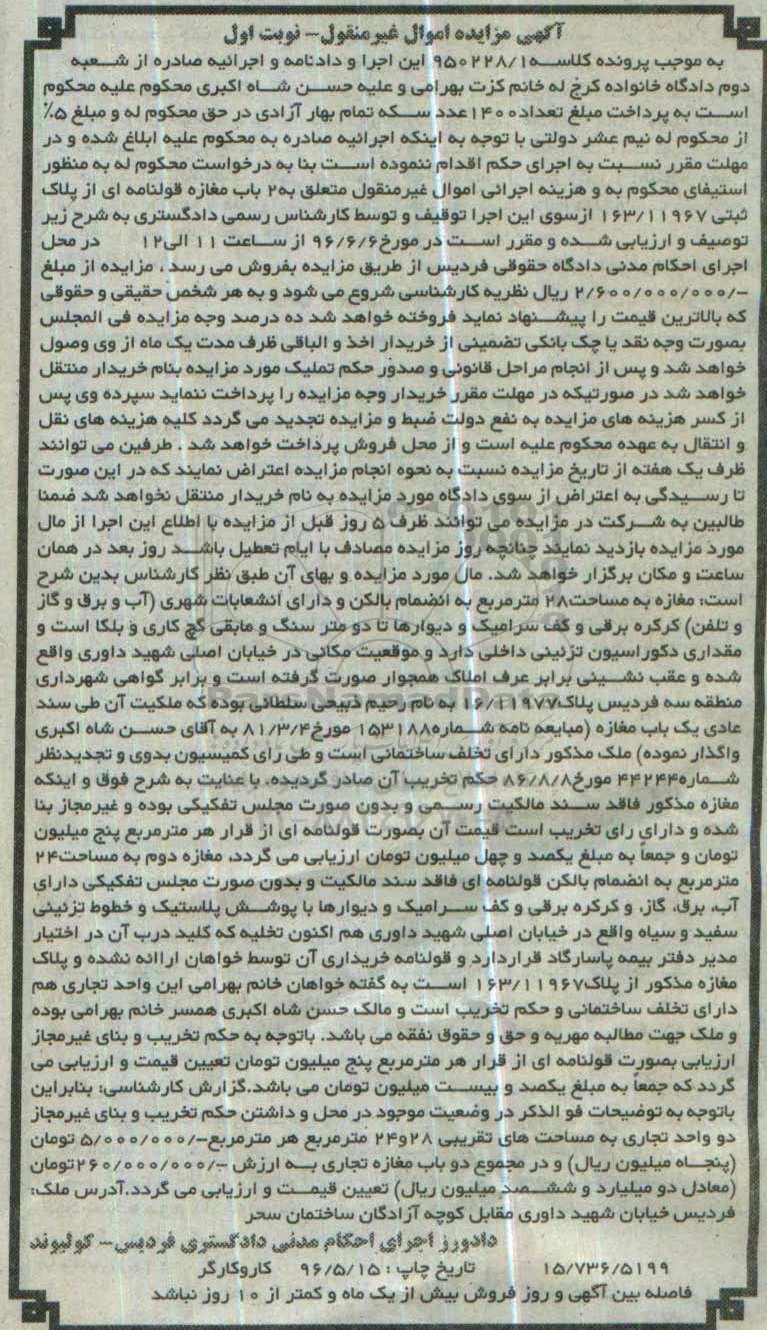 آگهی مزایده اموال غیرمنقول- نوبت اول
به موجب پرونده کلاسه۹۵۰۲۲۸/۱ این اجرا و دادنامه و اجرائیه صادره از شعبه
دوم دادگاه خانواده کرج له خانم کزت بهرامی و علیه حسن شاه اکبری محکوم علیه محکوم
است به پرداخت مبلغ تعداد۱۴۰۰عدد سکه تمام بهار آزادی در حق محکوم له و مبلغ ۵٪
از محکوم له نیم عشر دولتی با توجه به اینکه اجرائیه صادره به محکوم علیه ابلاغ شده و در
مهلت مقرر نسبت به اجرای حکم اقدام ننموده است بنا به درخواست محکوم له به منظور
استیفای محکوم به و هزینه اجرائی اموال غیرمنقول متعلق به۲ باب مغازه قولنامه ای از پلاک
ثبتی ۱۶۳/۱۱۹۶۷ ازسوی این اجرا توقیف و توسط کارشناس رسمی دادگستری به شرح زیر
توصیف و ارزیابی شده و مقرر است در مورخ۹۶/۶/۶ از ساعت ۱۱ الی۱۲ در محل
اجرای احکام مدنی دادگاه حقوقی فردیس از طریق مزایده بفروش می رسد . مزایده از مبلغ
۲/۶۰۰/۰۰۰/۰۰۰/- ریال نظریه کارشناسی شروع می شود و به هر شخص حقیقی و حقوقی
که بالاترین قیمت را پیشنهاد نماید فروخته خواهد شد ده درصد وجه مزایده فی المجلس
بصورت وجه نقد یا چک بانکی تضمینی از خریدار اخذ و الباقی ظرف مدت یک ماه از وی وصول
خواهد شد و پس از انجام مراحل قانونی و صدور حکم تملیک مورد مزایده بنام خریدار منتقل
خواهد شد در صورتیکه در مهلت مقرر خریدار وجه مزایده را پرداخت ننماید سپرده وی پس
از کسر هزینه های مزایده به نفع دولت ضبط و مزایده تجدید می گردد کلیه هزینه های نقل
و انتقال به عهده محکوم علیه است و از محل فروش پرداخت خواهد شد . طرفین می توانند
ظرف یک هفته از تاریخ مزایده نسبت به نحوه انجام مزایده اعتراض نمایند که در این صورت
تا رسیدگی به اعتراض از سوی دادگاه مورد مزایده به نام خریدار منتقل نخواهد شد ضمنا
طالبین به شرکت در مزایده می توانند ظرف ۵ روز قبل از مزایده با اطلاع این اجرا از مال
مورد مزایده بازدید نمایند چنانچه روز مزایده مصادف با ایام تعطیل باشد روز بعد در همان
ساعت و مکان برگزار خواهد شد. مال مورد مزایده و بهای آن طبق نظر کارشناس بدین شرح
است: مغازه به مساحت۲۸ مترمربع به انضمام بالکن و دارای انشعابات شهری (آب و برق و گاز
و تلفن) کرکره برقی و کف سرامیک و دیوارها تا دو متر سنگ و مابقی گچ کاری و بلکا است و
مقداری دکوراسیون تزئینی داخلی دارد و موقعیت مکانی در خیابان اصلی شهید داوری واقع
شده و عقب نشینی برابر عرف املاک همجوار صورت گرفته است و برابر گواهی شهرداری
منطقه سه فردیس پلاک۱۶/۱۱۹۷۷ به نام رحیم ذبیحی سلطانی بوده که ملکیت آن طی سند
عادی یک باب مغازه (مبایعه نامه شماره۱۵۳۱۸۸ مورخ۸۱/۳/۴ به آقای حسن شاه اکبری
واگذار نموده) ملک مذکور دارای تخلف ساختمانی است و طی رای کمیسیون بدوی و تجدیدنظر
شماره۴۴۲۴۴ مورخ۸۶/۸/۸ حکم تخریب آن صادر گردیده. با عنایت به شرح فوق و اینکه
مغازه مذکور فاقد سند مالکیت رسمی و بدون صورت مجلس تفکیکی بوده و غیرمجاز بنا
شده و دارای رای تخریب است قیمت آن بصورت قولنامه ای از قرار هر مترمربع پنج میلیون
تومان و جمعاً به مبلغ یکصد و چهل میلیون تومان ارزیابی می گردد، مغازه دوم به مساحت۲۴
مترمربع به انضمام بالکن قولنامه ای فاقد سند مالکیت و بدون صورت مجلس تفکیکی دارای
آب، برق، گاز، و کرکره برقی و کف سرامیک و دیوارها با پوشش پلاستیک و خطوط تزئینی
سفید و سیاه واقع در خیابان اصلی شهید داوری هم اکنون تخلیه که کلید درب آن در اختیار
مدیر دفتر بیمه پاسارگاد قراردارد و قولنامه خریداری آن توسط خواهان اراانه نشده و پلاک
مغازه مذکور از پلاک۱۶۳/۱۱۹۶۷ است به گفته خواهان خانم بهرامی این واحد تجاری هم
دارای تخلف ساختمانی و حکم تخریب است و مالک حسن شاه اکبری همسر خانم بهرامی بوده
و ملک جهت مطالبه مهریه و حق و حقوق نفقه می باشد. باتوجه به حکم تخریب و بنای غیرمجاز
ارزیابی بصورت قولنامه ای از قرار هر مترمربع پنج میلیون تومان تعیین قیمت و ارزیابی می
گردد که جمعاً به مبلغ یکصد و بیست میلیون تومان می باشد.گزارش کارشناسی: بنابراین
باتوجه به توضیحات فو الذکر در وضعیت موجود در محل و داشتن حکم تخریب و بنای غیرمجاز
دو واحد تجاری به مساحت های تقریبی ۲۸و۲۴ مترمربع هر مترمربع-/۵/۰۰۰/۰۰۰ تومان
(پنجاه میلیون ریال) و در مجموع دو باب مغازه تجاری به ارزش -/۲۶۰/۰۰۰/۰۰۰تومان
(معادل دو میلیارد و ششصد میلیون ریال) تعیین قیمت و ارزیابی می گردد.آدرس ملک:
فردیس خیابان شهید داوری مقابل کوچه آزادگان ساختمان سحر
دادورز اجرای احکام مدنی دادگستری فردیس- کولیوند
۱۵/۷۳۶/۵۱۹۹ تاریخ چاپ : ۹۶/۵/۱۵ کاروکارگر
فاصله بین آگهی و روز فروش بیش از یک ماه و کمتر از ۱۰ روز نباشد